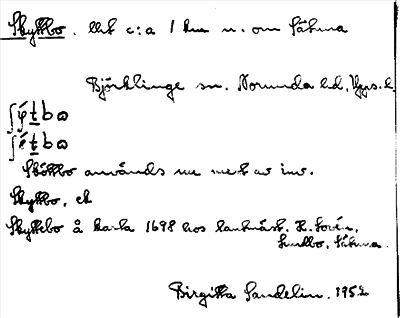 Skyttbo. litet c:a 1 km n. om Sätuna
Björklinge sn. Norunda hd, Upps. l.
ʃýt̲bɷ
ʃét̲bɷ
Skättbo används nu mest av inv.
Skyttbo, ek
Skyttebo å karta 1698 hos lantmät. H. Lovén,
Lindbo, Sätuna.
Birgitta Sandelin. 1952